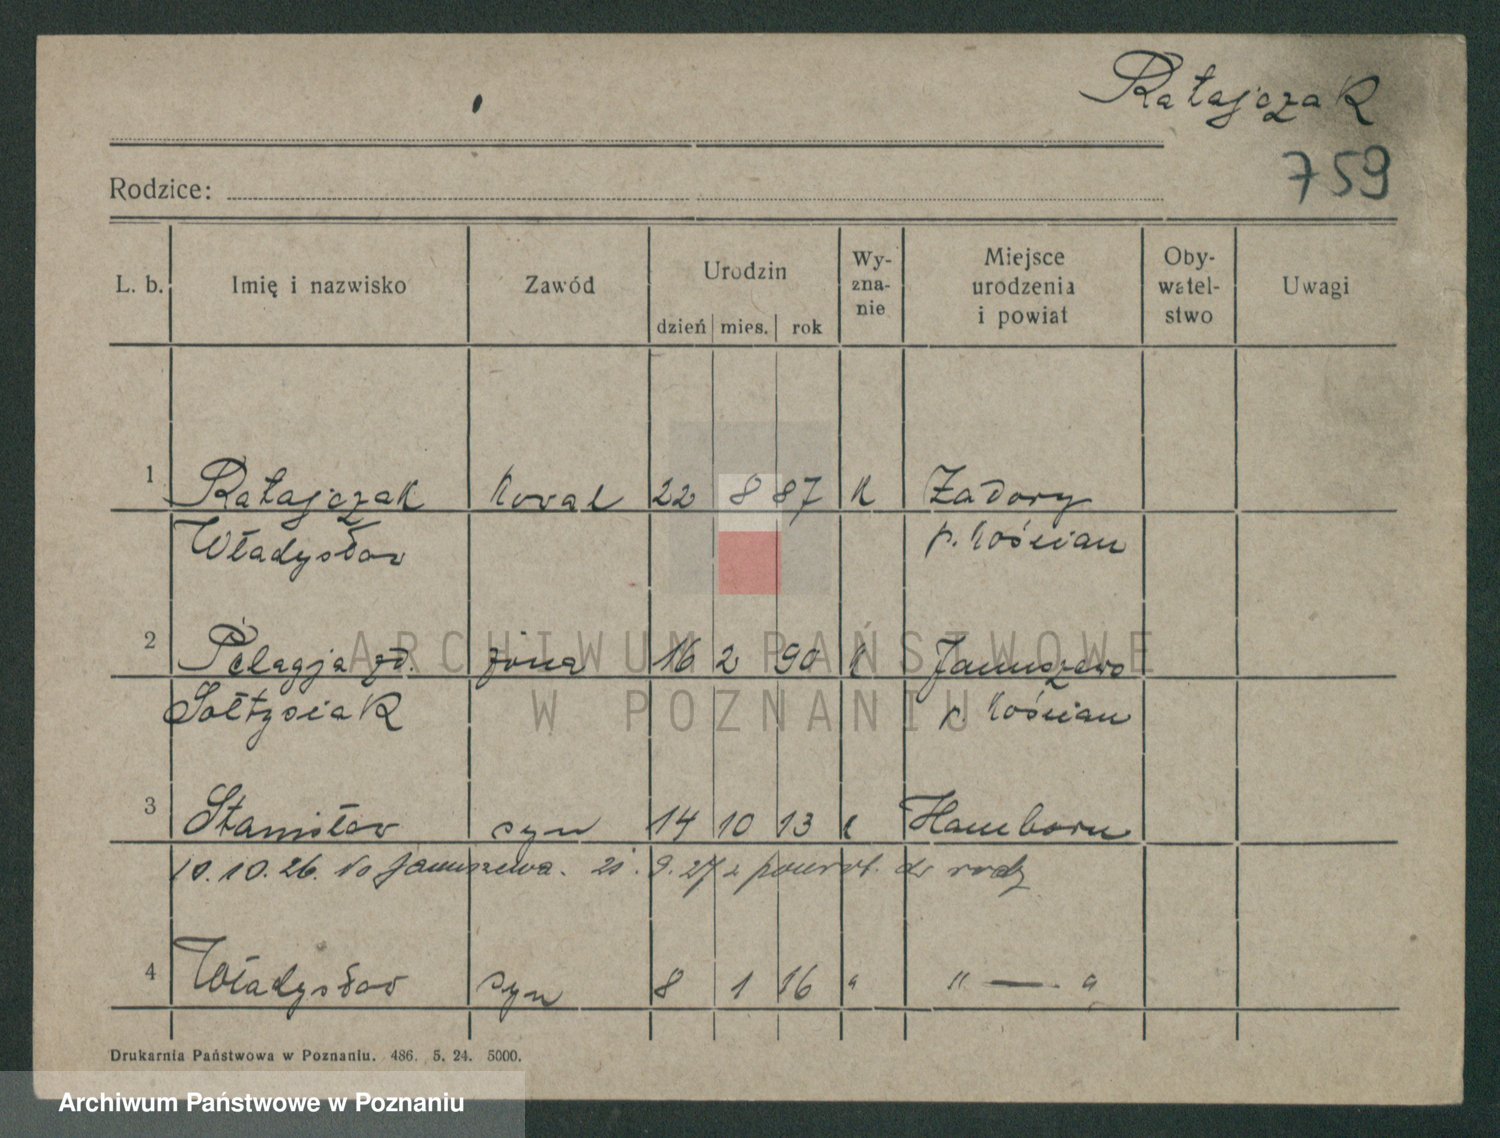 Ratajczak
759
Rodzice:
L. b. Imię i nazwisko Zawód Urodzin dzień mies. rok Wy-zna-nie Miejsce urodzenia i powiat Oby-watel-stwo Uwagi
1 Ratajczak Kowal 22 8 87 K Zadory
Władysław p. Kościan
2 Pelagja zd. żona 16 2 90 K Januszewo
Sołtysiak p. Kościan
3 Stanisław syn 14 10 13 K Hamborn
10.10.26. do Januszewa. 9.27 z powrot. do rodz
4 Władysław syn 8 1 16 " " — "
Drukarnia Państwowa w Poznaniu. 486. 5. 24. 5000.
ARCHIWUM PAŃSTWOWE
W POZNANIU
Archiwum Państwowe w Poznaniu